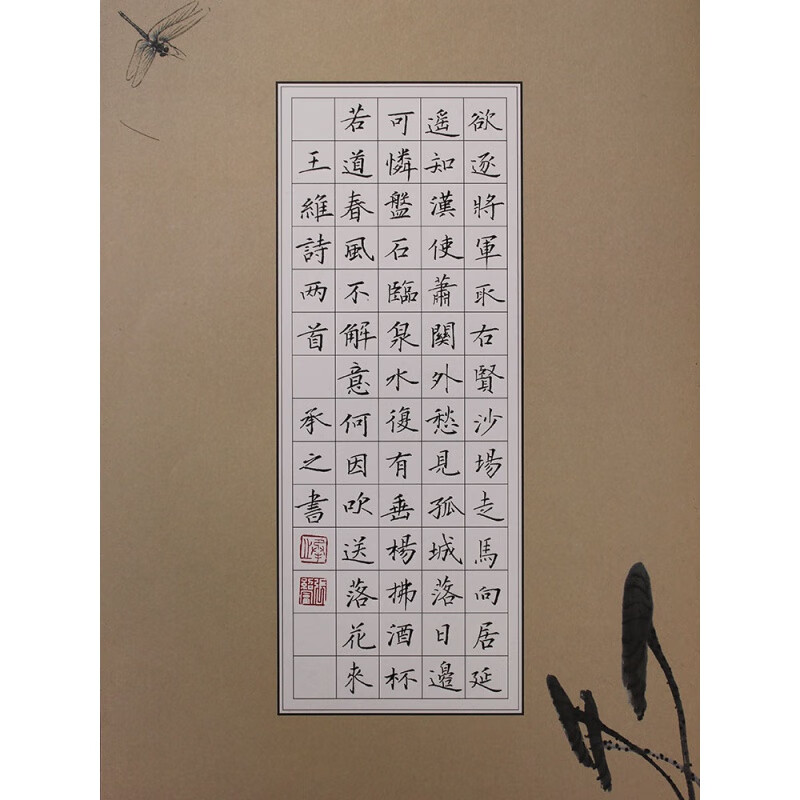 欲逐將軍取右賢沙場走馬向居延
遙知漢使蕭關外愁見孤城落日邊
可憐盤石臨泉水復有垂楊拂酒杯
若道春風不解意何因吹送落花來
王維詩两首 承之書